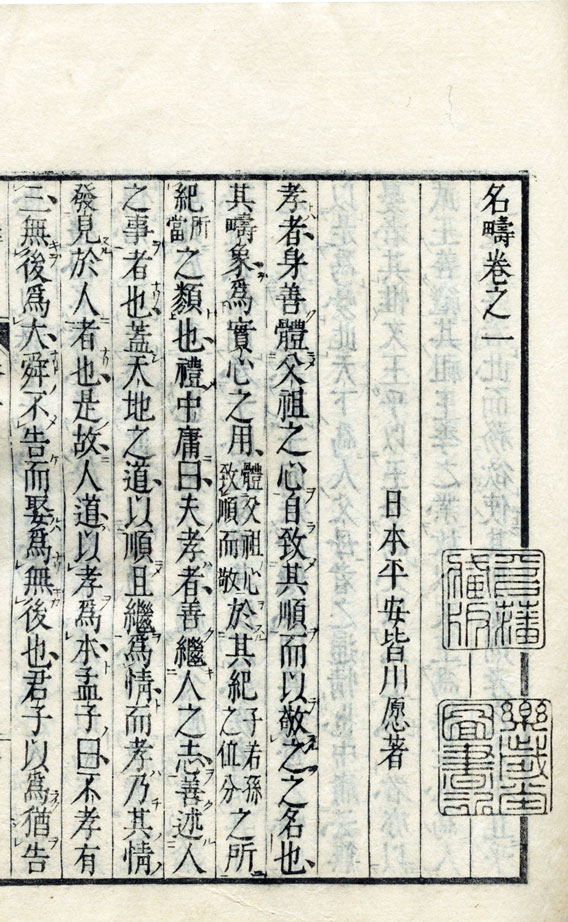 名疇卷之一
日本平安皆川愿著
孝者身善體父祖之心自致其順而以敬之之名也
其疇象爲實心之用體父祖心致順而敬於其紀子若孫之値分之所
紀所當之類也禮中庸曰夫孝者善繼人之志善述人
之事者也蓋天地之道以順且繼爲情而孝乃其情
發見於人者也是故人道以孝爲本孟子曰不孝有
三無後爲大舜不告而娶爲無後也君子以爲猶告